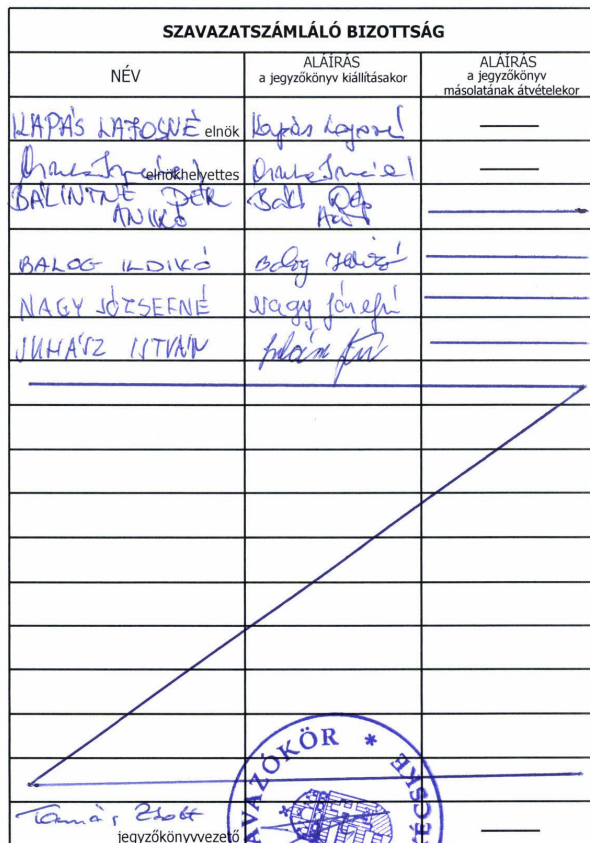 SZAVAZATSZÁMLÁLÓ BIZOTTSÁG
NÉV
ALÁÍRÁS
a jegyzőkönyv kiállításakor
ALÁÍRÁS
a jegyzőkönyv
másolatának átvételekor
KAPÁS LAJOSNÉ elnök Kapás Lajosné
elnökhelyettes
BÁLINTNÉ PÉK
ANIKÓ
BALOG ILDIKÓ Balog Ildikó
NAGY JÓZSEFNÉ Nagy Józsefné
JUHÁSZ ISTVÁN
Tamás Zsolt
jegyzőkönyvvezető
AVAZÓKÖR * CSKE